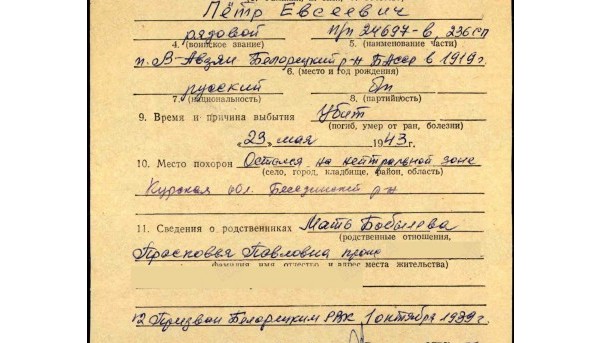 Пётр Евсеевич
рядовой п/п 24697-в, 236сп
4. (воинское звание) 5. (наименование части)
п. В-Авзян Белорецкий р-н БАССР в 1919 г.
6. (место и год рождения)
русский б/п
7. (национальность) 8. (партийность)
9. Время и причина выбытия Убит
(погиб, умер от ран, болезни)
„23„ мая 1943 г.
10. Место похорон Остался на нейтральной зоне
(село, город, кладбище, район, область)
Курская обл. Беседински р-н
11. Сведения о родственниках Мать Бобылева
(родственные отношения,
Прасковья Павловна прож
фамилия, имя, отчество и адрес места жительства)
12 Призван Белорецким РВК 1 октября 1939 г.